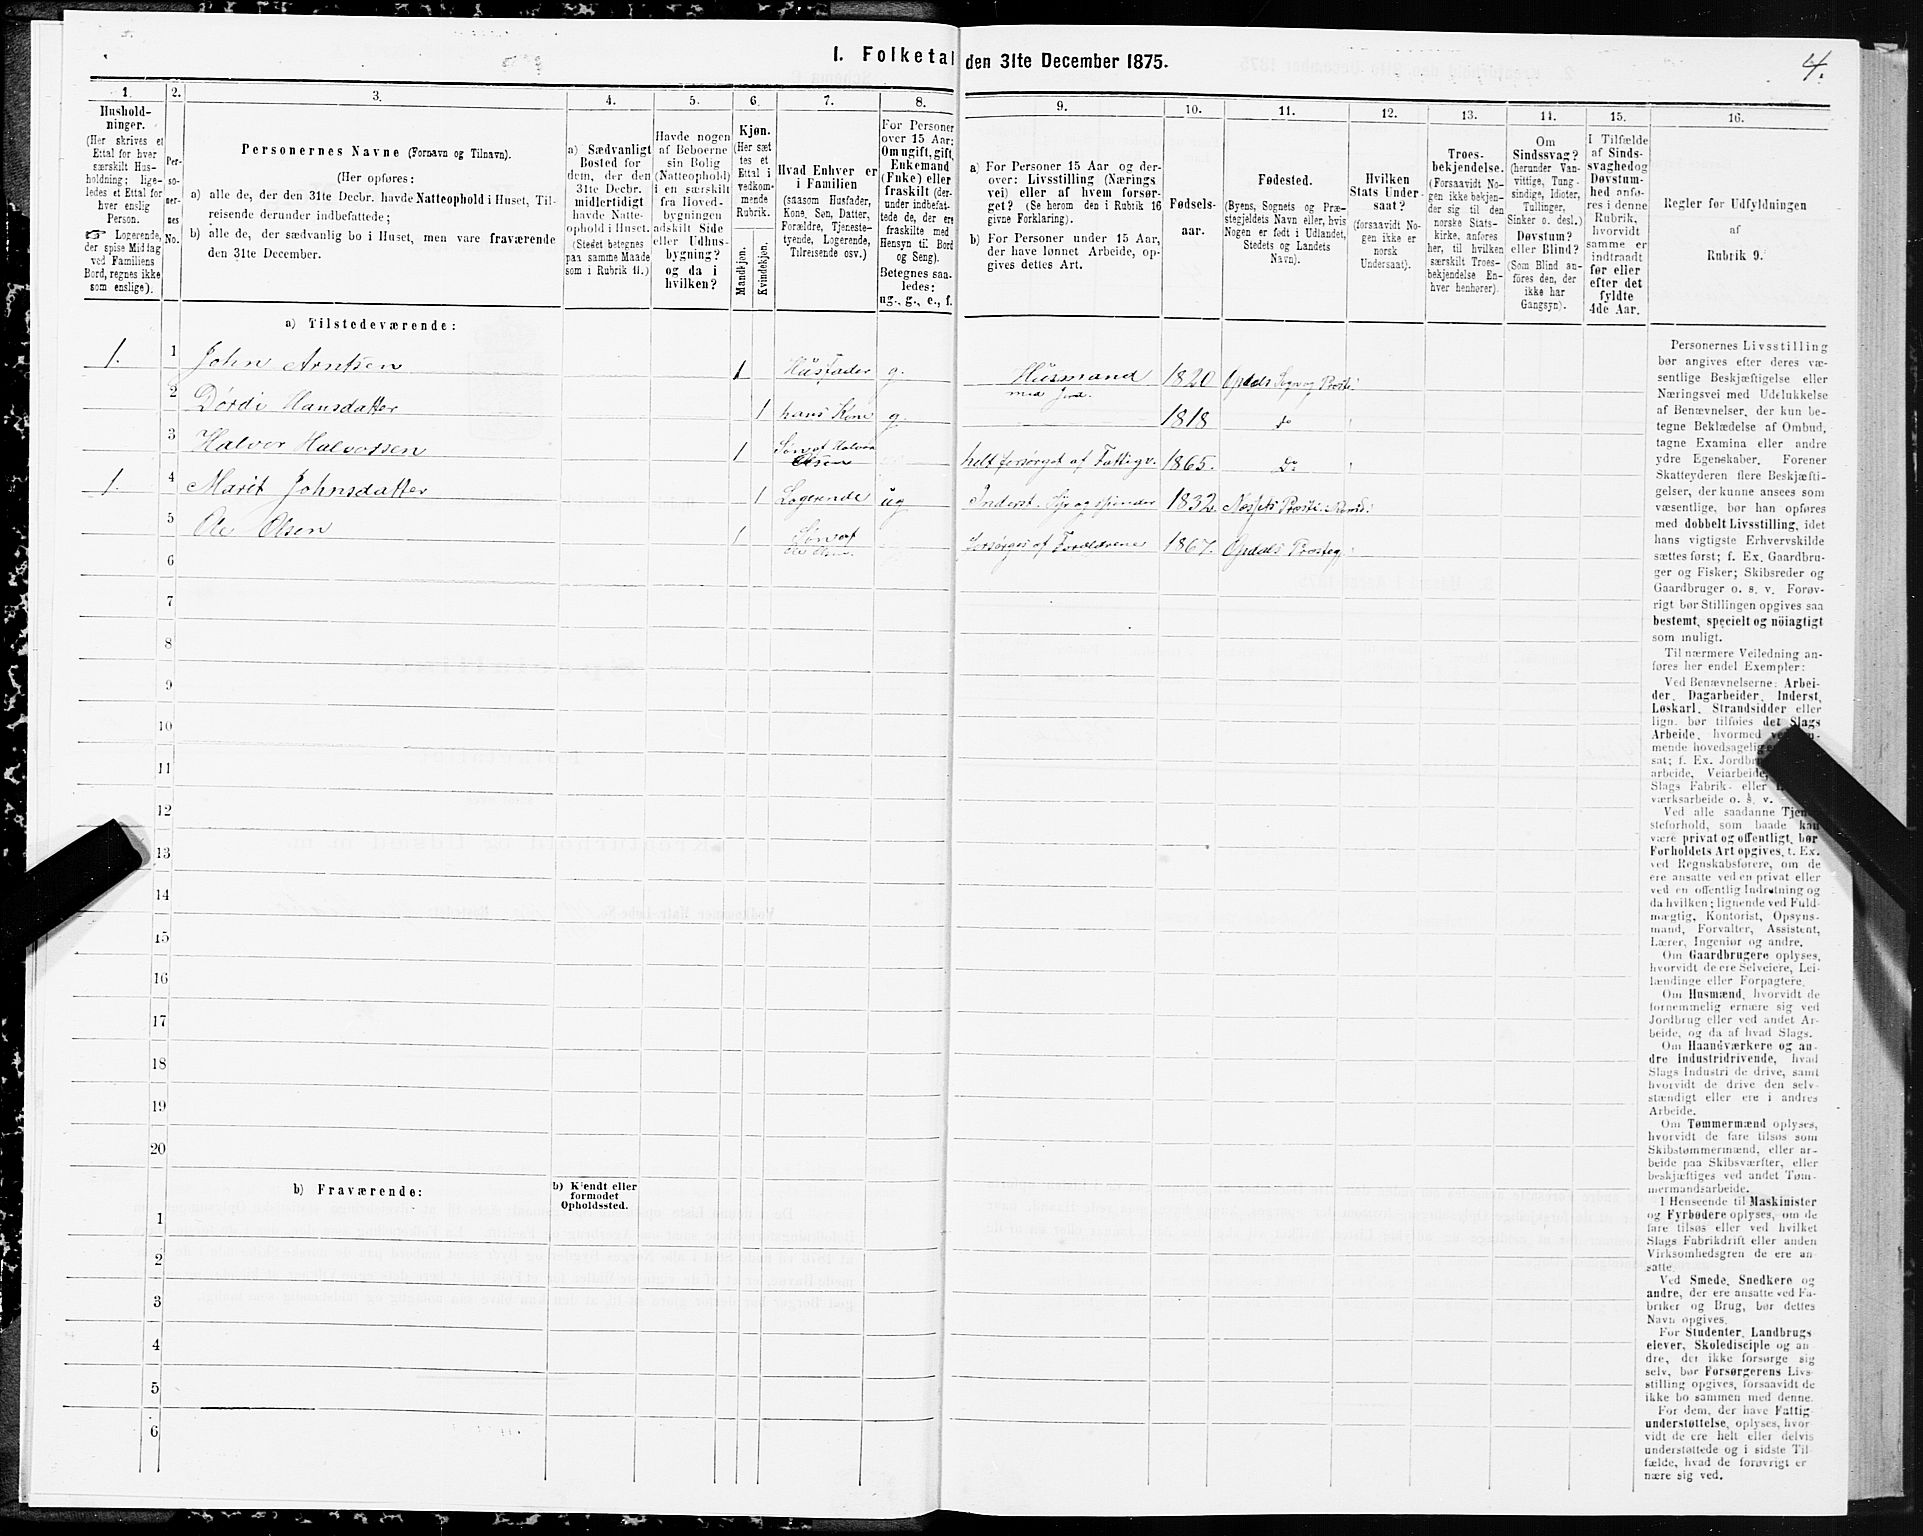 I. Folketal den 31te December 1875.
4.
1.
Hushold-
ninger.
(Her skrives et
Ettal for hver
særskilt Hus-
holdning; lige-
ledes et Ettal for
hver enslig
Person.
☞ Logerende,
der spise Midtag
ved Familiens
Bord, regnes ikke
som enslige).
2.
Per-
so-
ner-
nes
No.
3.
Personernes Navne (Fornavn og Tilnavn).
(Her opføres:
a) alle de, der den 31te Decbr. havde Natteophold i Huset, Til-
reisende derunder indbefattede;
b) alle de, der sædvanlig bo i Huset, men vare fraværende
den 31te December.
4.
a) Sædvanligt
Bosted for
dem, der den
31te Decbr.
midlertidigt
havde Natte-
ophold i Huset.
(Stedet betegnes
paa samme Maade
som i Rubrik 11.)
5.
Havde nogen
af Beboerne
sin Bolig
(Natteophold)
i en særskilt
fra Hoved-
bygningen
adskilt Side
eller Udhus-
bygning?
og da i
hvilken?
6.
Kjøn.
(Her sæt
tes et
Ettal i
vedkom-
mende
Rubrik.
Mandkjøn.
Kvindekjøn.
7.
Hvad Enhver er
i Familien
(saasom Husfader,
Kone, Søn, Datter,
Forældre, Tjeneste-
tyende, Logerende,
Tilreisende osv.)
8.
For Personer
over 15 Aar:
Om ugift, gift,
Enkemand
(Enke) eller
fraskilt (der-
under indbefat-
tede de, der ere
fraskilte med
Hensyn til Bord
og Seng).
Betegnes saa-
ledes:
ug., g., e., f.
9.
a) For Personer 15 Aar og der-
over: Livsstilling (Nærings
vei) eller af hvem forsør-
get? (Se herom den i Rubrik 16
givne Forklaring).
b) For Personer under 15 Aar,
der have lønnet Arbeide, op-
gives dettes Art.
10.
Fødsels-
aar.
11.
Fødested.
(Byens, Sognets og Præ-
stegjeldets Navn eller, hvis
Nogen er født i Udlandet,
Stedets og Landets
Navn).
12.
Hvilken
Stats Under-
saat?
(forsaavidt No-
gen ikke er
norsk
Undersaat).
13.
Troes-
bekjendelse.
(Forsaavidt No-
gen ikke bekjen-
der sig til den
norske Stats-
kirke, anføres
her, til hvilken
særskilt Troes-
bekjendelse En-
hver henhører).
14.
Om
Sindssvag?
(herunder Van-
vittige, Tung-
sindige, Idioter,
Tullinger,
Sinker o. desl.)
Døvstum?
eller Blind?
(Som Blind an-
føres den, der
ikke har
Gangsyn).
15.
I Tilfælde
af Sinds-
svaghed og
Døvstum-
hed anfø-
res i denne
Rubrik,
hvorvidt
samme er
indtraadt
før eller
efter det
fyldte
4de Aar.
16.
Regler for Udfyldningen
af
Rubrik 9.
a) Tilstedeværende:
1. 1 John Arntsen 1 Husfader g. Husmand med Jord. 1820 Opdals Sogn og Præsti.
2 Dordi Hansdatter 1 hans Kone g. 1818 do
3 Halvor Halvorsen 1 Søn af Halvor Olsen helt forsørget af Fattigv. 1865. Do
1. 4 Marit Johnsdatter 1 Logerende ug Inderst. Syr og spinder 1832.
5 Ole Olsen 1 Søn af Ole Olsen Forsørges af Forældrene 1867. Opdals Præsteg.
6
7
8
9
10
11
12
13
14
15
16
17
18
19
20
b) Fraværende:
b) Kjendt eller
formodet
Opholdssted.
1
2
3
4
5
6
Personernes Livsstilling
bør angives efter deres væ-
sentlige Beskjæftigelse eller
Næringsvei med Udelukkelse
af Benævnelser, der kun be-
tegne Beklædelse af Ombud,
tagne Examina eller andre
ydre Egenskaber. Forener
Skatteyderen flere Beskjæfti-
gelser, der kunne ansees som
væsentlige, bør han opføres
med dobbelt Livsstilling, idet
hans vigtigste Erhvervskilde
sættes først; f. Ex. Gaardbru-
ger og Fisker; Skibsreder og
Gaardbruger o. s. v. Forøv-
rigt bør Stillingen opgives saa
bestemt, specielt og nöiagtigt
som muligt.
Til nærmere Veiledning an-
føres her endel Exempler:
Ved Benævnelserne: Arbei-
der, Dagarbeider, Inderst,
Løskarl, Strandsidder eller
lign. bør tilføies det Slags
Arbeide, hvormed
mende hovedsagelig
sat; f. Ex.
arbeide, Veiarbeide,
Slags Fabrik- eller
værksarbeide o. s. v.
Ved alle saadanne Tjen-
steforhold, som baade kan
være privat og offentligt, bør
Forholdets Art opgives, t. Ex.
ved Regnskabsførere, om de
ere ansatte ved en privat eller
ved en offentlig Indretning og
da hvilken; lignende ved Fuld-
mægtig, Kontorist, Opsyns-
mand, Forvalter, Assistent,
Lærer, Ingeniør og andre.
Om Gaardbrugere oplyses,
hvorvidt de ere Selveiere, Lei-
lændinge eller Forpagtere.
Om Husmænd, hvorvidt de
fornemmelig ernære sig ved
Jordbrug eller ved andet Ar-
beide, og da af hvad Slags.
Om Haandværkere og an-
dre Industridrivende, hvad
Slags Industri de drive, samt
hvorvidt de drive den selv-
stændigt eller ere i andres
Arbeide.
Om Tømmermænd oplyses,
hvorvidt de fare tilsøs som
Skibstømmermænd, eller ar-
beide paa Skibsværfter, eller
beskjæftiges ved andet Tøm-
mermandsarbeide.
I Henseende til Maskinister
og Fyrbødere oplyses, om de
fare tilsøs eller ved hvilket
Slags Fabrikdrift eller anden
Virksomhedsgren de ere an-
satte.
Ved Smede, Snedkere og
andre, der ere ansatte ved Fa-
briker og Brug, bør dettes
Navn opgives.
For Studenter, Landbrugs
elever, Skoledisciple og an
dre, der ikke forsørge sig
selv, bør Forsørgerens Livs-
stilling opgives, forsaavidt de
ikke bo sammen med denne.
For dem, der have Fattig
understøttelse, oplyses, hvor
vidt de ere helt eller delvis
understøttede og i sidste Til
fælde, hvad de forøvrigt er
nære sig ved.